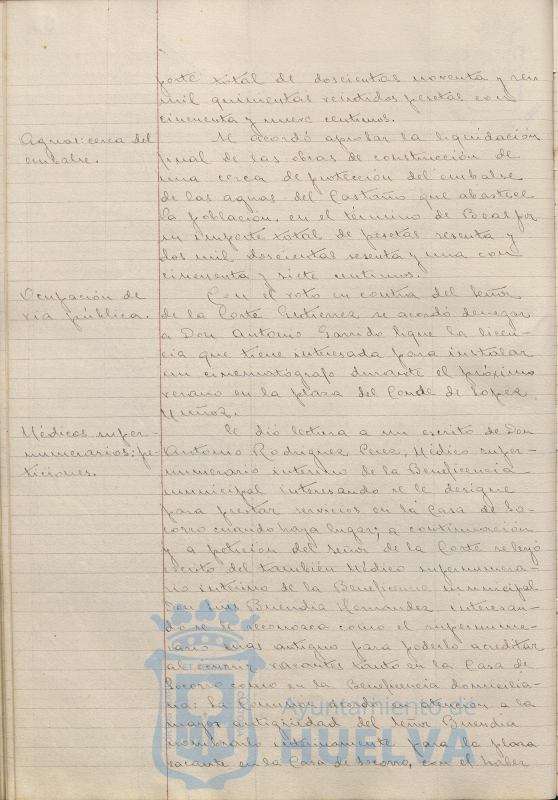 porte total de doscientas noventa y seis
mil quinientas veintidos pesetas con
cincuenta y nueve centimos.
Aguas: cerca del
embalse.
Se acordó aprobar la liquidación
final de las obras de construcción de
una cerca de protección del embalse
de las aguas del Castaño que abastece
la población, en el término de Beas por
un importe total de pesetas sesenta y
dos mil doscientas sesenta y una con
cincuenta y siete centimos.
Ocupación de
via pública.
Con el voto en contra del Señor
de la Corte Gutierrez se acordó denegar
a Don Antonio Garrido Ligue la licen-
cia que tiene interesada para instalar
un cinematógrafo durante el próximo
verano en la plaza del Conde de Lopez
Muñoz.
Médicos super-
numerarios: pe-
ticiones.
Se dió lectura a un escrito de Don
Antonio Rodriguez Perez, Médico super-
numerario interino de la Beneficencia
municipal interesando se le designe
para prestar servicios en la Casa de So-
corro cuando haya lugar; a continuación
y a petición del Señor de la Corte se leyó
escrito del también Médico supernumera-
rio interino de la Beneficencia municipal
Don Luis Buendia Hernandez interesan-
do se le reconozca como el supernume-
rario mas antiguo para poderlo acreditar
al ocurrir vacantes tanto en la Casa de
Socorro como en la Beneficencia domicilia-
ria: la Comision acordó en atención a la
mayor antigüedad del Señor Buendia
nombrarlo interinamente para la plaza
vacante en la Casa de Socorro, con el haber
Ayuntamiento de
HUELVA